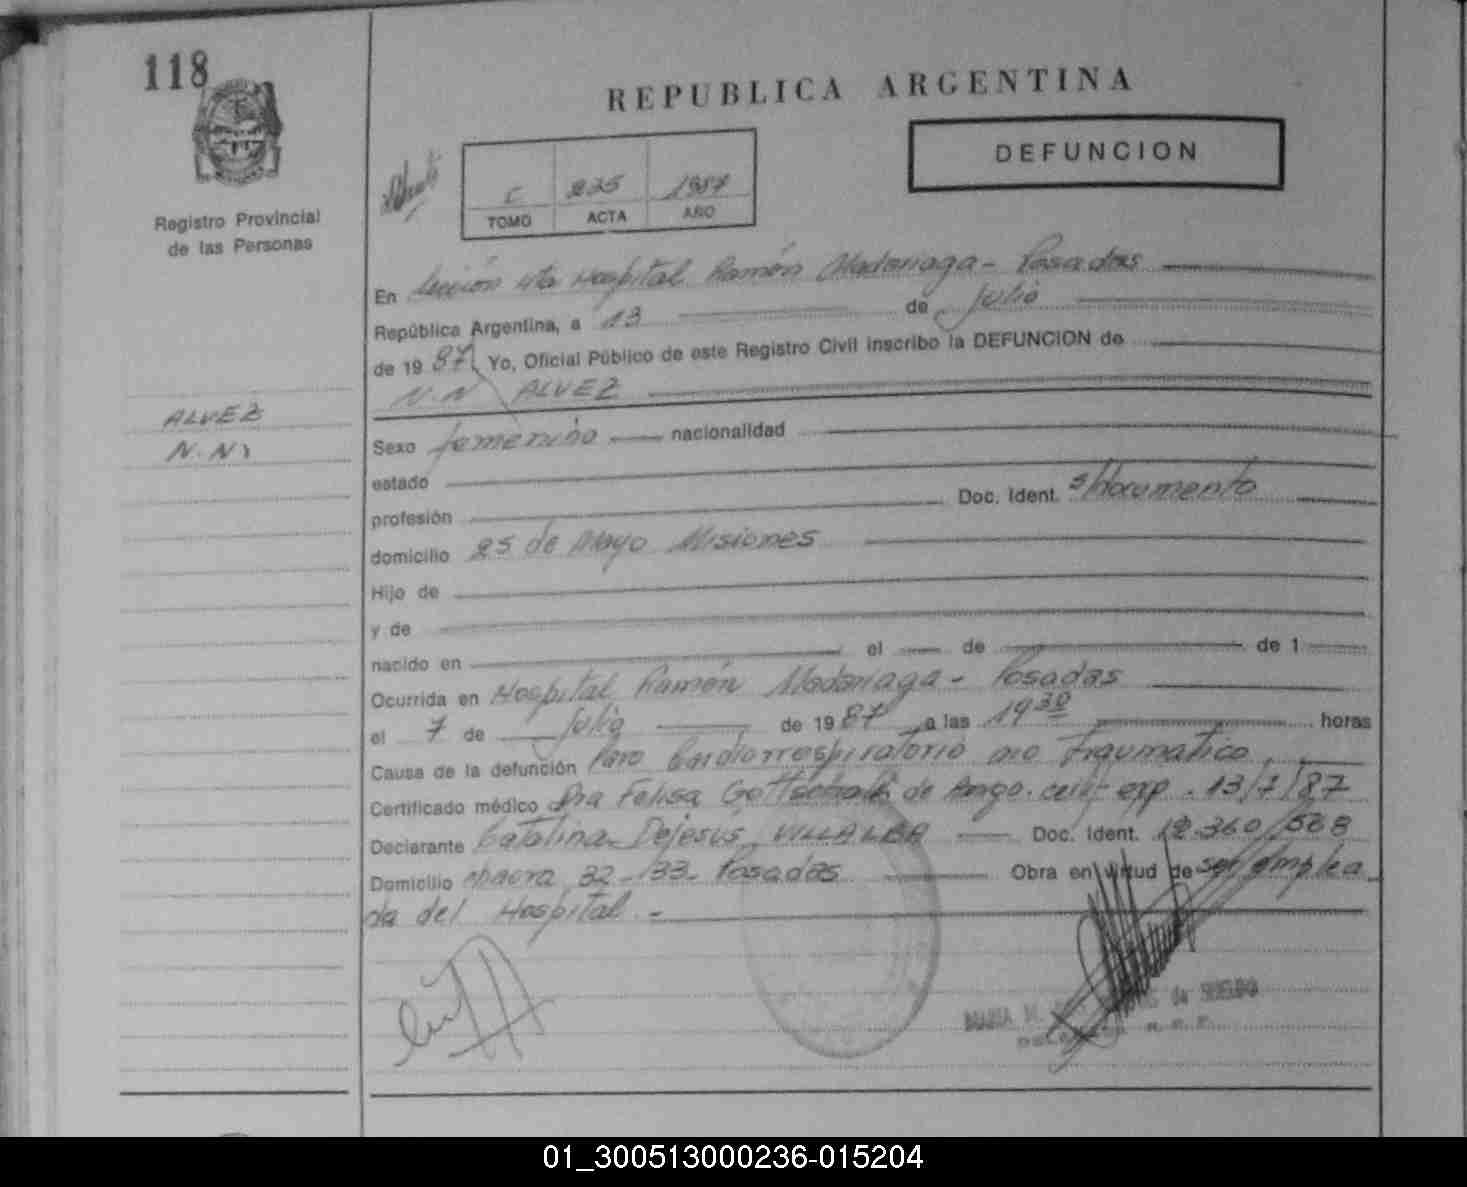 118
REPUBLICA ARGENTINA
DEFUNCION
C 235 1987
TOMO ACTA AÑO
Registro Provincial
de las Personas
En Sección 4ta Hospital Ramón Madariaga - Posadas
República Argentina, a 13 de Julio
de 19 87 Yo, Oficial Público de este Registro Civil inscribo la DEFUNCION de
N.N ALVEZ
ALVEZ
N.N
Sexo femenino nacionalidad
estado
profesión Doc. Ident. s/documento
domicilio 25 de Mayo Misiones
Hijo de
y de
nacido en el de de 1
Ocurrida en Hospital Ramón Madariaga - Posadas
el 7 de Julio de 19 87 a las 19 30 horas
Causa de la defunción Paro Cardiorrespiratorio no Traumatico
Certificado médico Dra Felisa de cert- exp. 13/7/87
Declarante Catalina Dejesus VILLALBA Doc. Ident. 12.360/568
Domicilio chacra 32-33- Posadas Obra en virtud de ser emplea
da del Hospital -
MARIA de
01_300513000236-015204